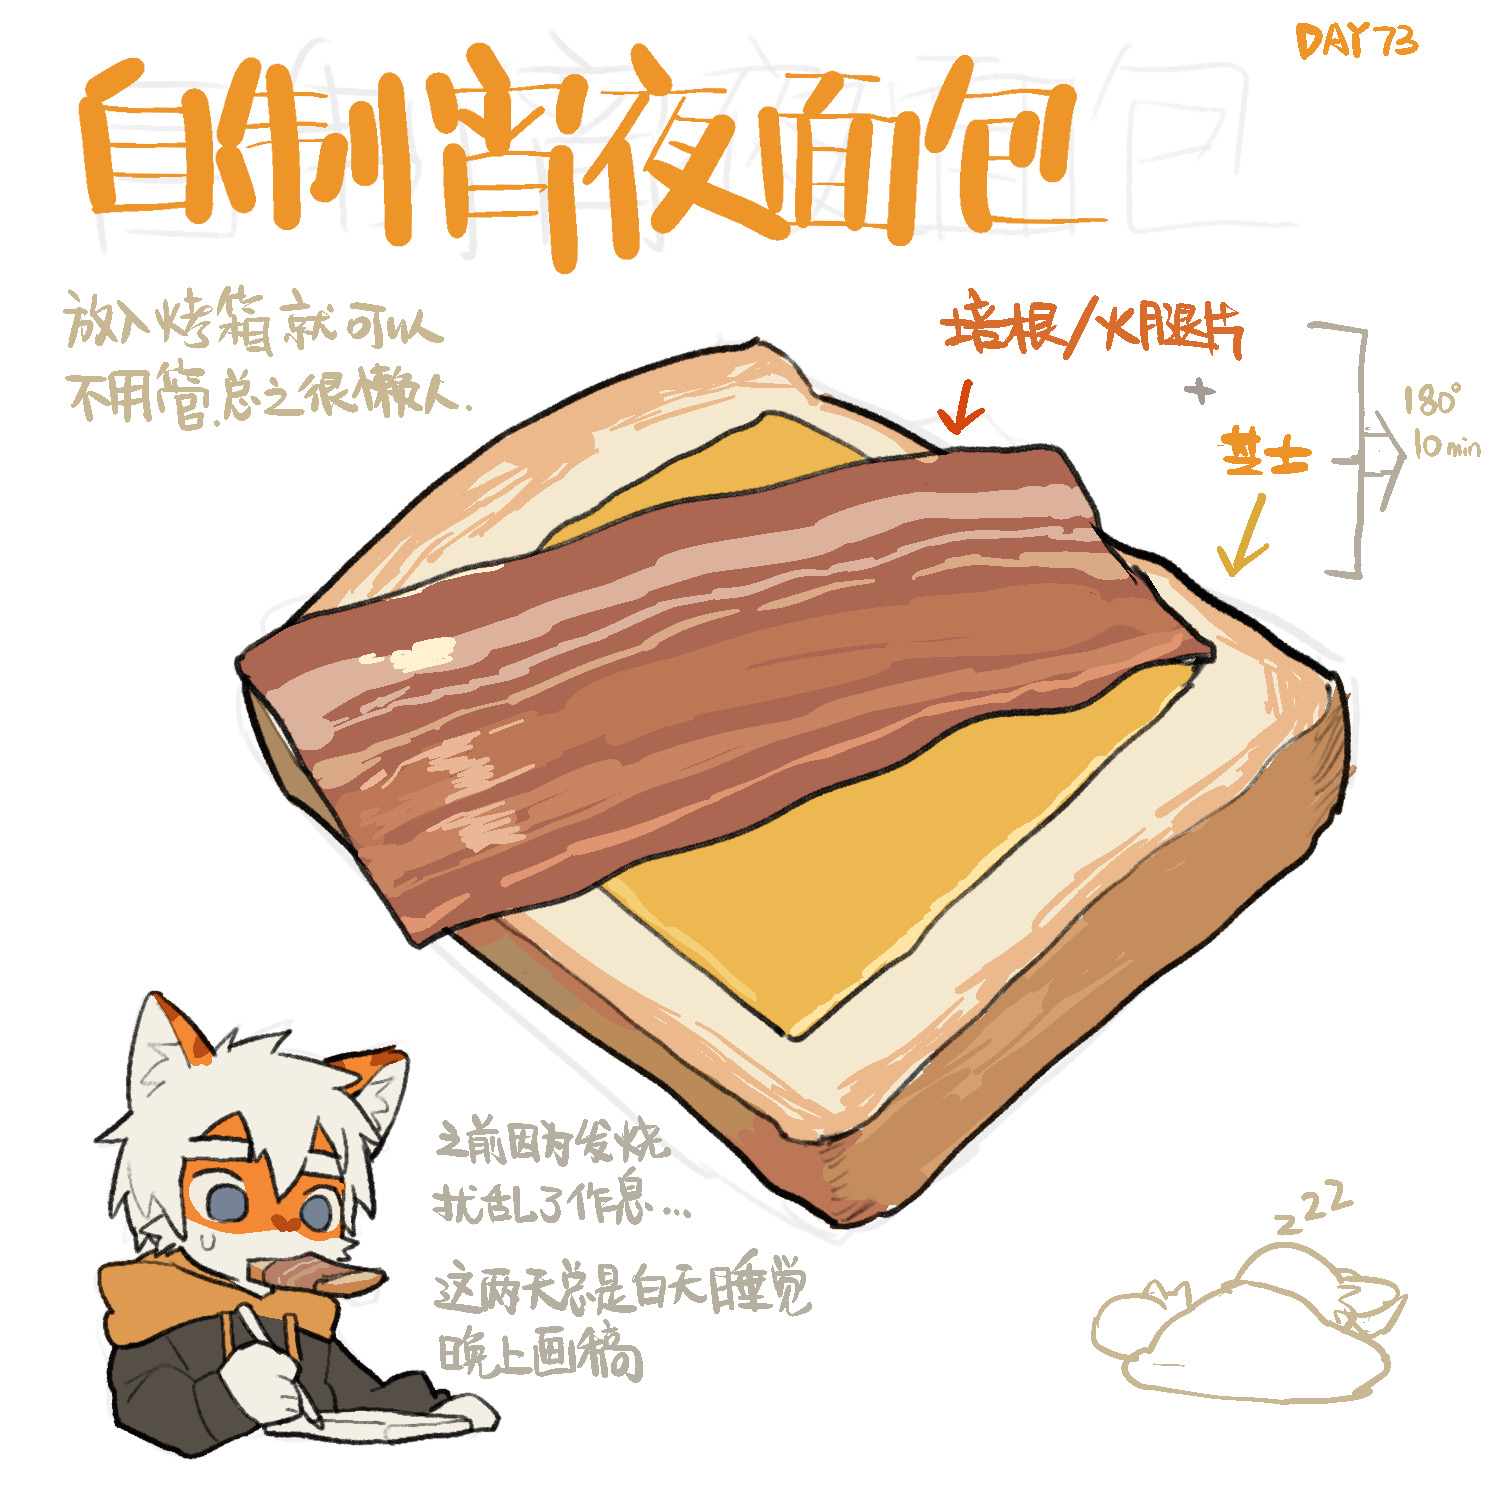 DAY 73
自制宵夜面包
放入烤箱就可以
不用管.总之很懒人.
培根/火腿片
+
芝士
180°
10min
之前因为发烧
扰乱了作息...
这两天总是白天睡觉
晚上画稿
zzz